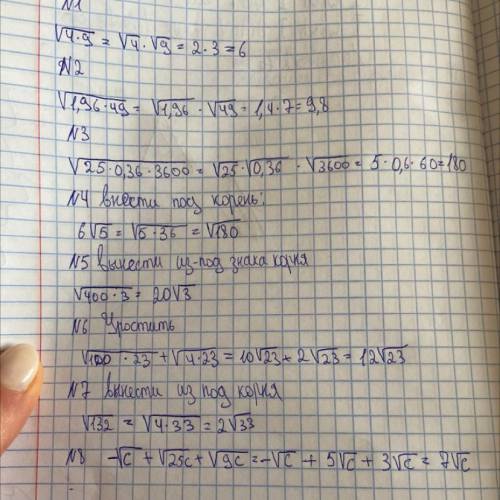 N1
√4·9 = √4 · √9 = 2·3 = 6
N2
√1,96·49 = √1,96 · √49 = 1,4·7 = 9,8
N3
√25·0,36·3600 = √25·√0,36 · √3600 = 5·0,6·60=180
N4 внести под корень:
6√5 = √5·36 = √180
N5 вынести из-под знака корня
√400·3 = 20√3
N6 Упростить
√100·23 + √4·23 = 10√23 + 2√23 = 12√23
N7 вынести из под корня
√132 = √4·33 = 2√33
N8 -√c + √25c + √9c = -√c + 5√c + 3√c = 7√c